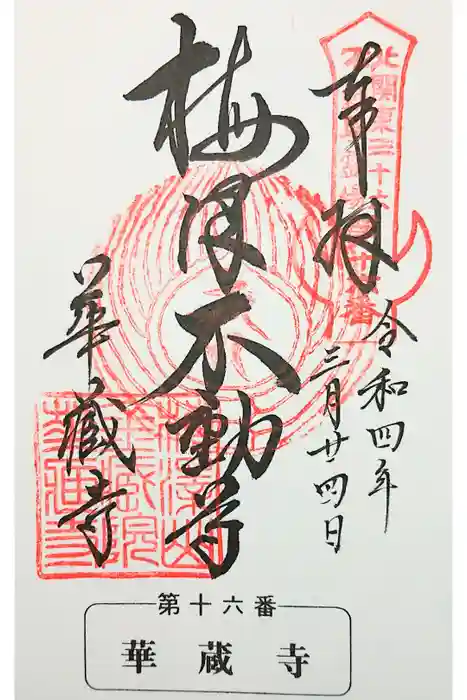 北關東三十六
番
奉拝
令和四年
三月廿四日
梅沢不動尊
華蔵寺
第十六番
華蔵寺